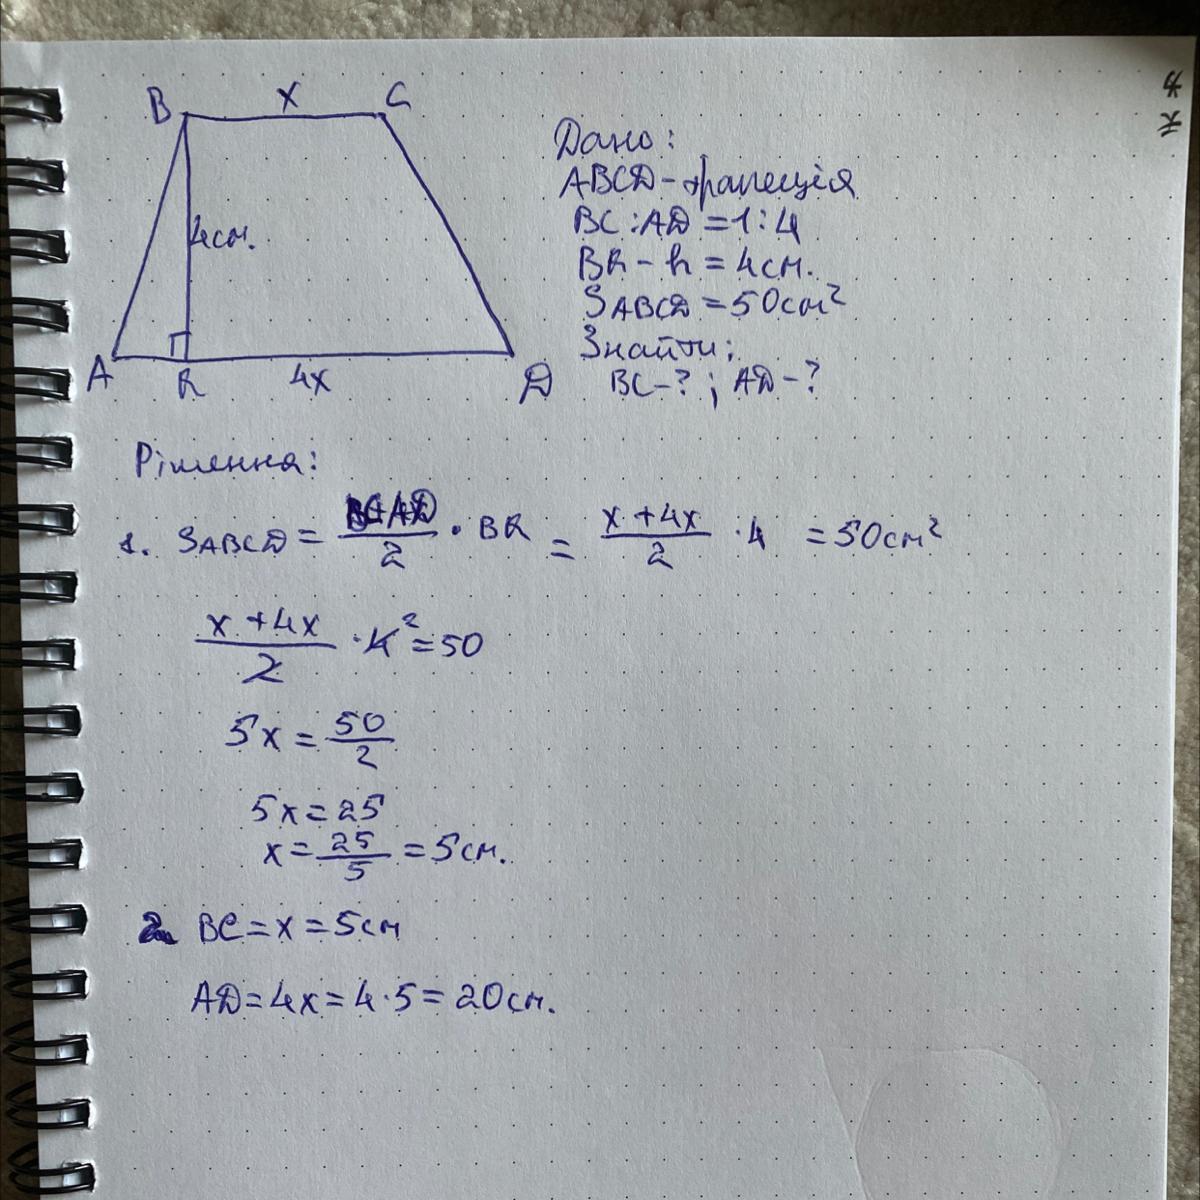 B x C
4см.
A R 4x D
Дано:
ABCD - трапеція
BC : AD = 1 : 4
BR - h = 4см.
SABCD = 50см²
Знайти:
BC - ? ; AD - ?
Рішення:
1. SABCD = BC+AD/2 · BR = x + 4x/2 · 4 = 50см²
x + 4x/2 · 4² = 50
5x = 50/2
5x = 25
x = 25/5 = 5см.
2. BC = x = 5см
AD = 4x = 4 · 5 = 20см.